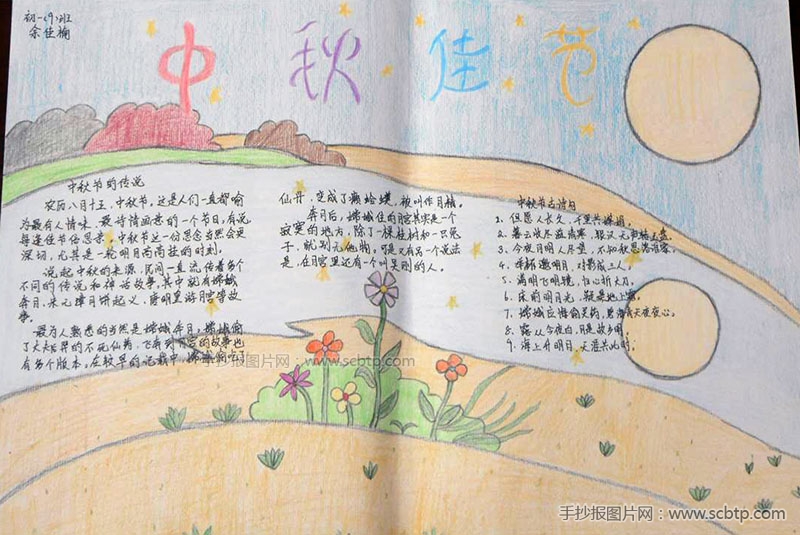 初一(9)班
余佳楠
中秋佳节
中秋节的传说
农历八月十五,中秋节,这是人们一直都喻
为最有人情味、最诗情画意的一个节日,有说
每逢佳节倍思亲。中秋节这一份思念当然会更
深切,尤其是一轮明月高高挂的时刻。
说起中秋的来源,民间一直流传着多个
不同的传说和神话故事。其中就有嫦娥
奔月、朱元璋月饼起义、唐明皇游月宫等故
事。
最为人熟悉的当然是嫦娥奔月,嫦娥偷
了丈夫后羿的不死仙药,飞奔到月宫的故事也
有多个版本。在较早的记载中,嫦娥偷吃了
仙丹,变成了癞蛤蟆,被叫作月精。
奔月后,嫦娥住的月宫其实是一个
寂寞的地方,除了一棵桂树和一只兔
子,就别无他物。可是又有另一个说法
是,在月宫里还有一个叫吴刚的人。
中秋节古诗句
1、但愿人长久,千里共婵娟。
2、暮云收尽溢清寒,银汉无声转玉盘。
3、今夜月明人尽望,不知秋思落谁家。
4、举杯邀明月,对影成三人。
5、满月飞明镜,归心折大刀。
6、床前明月光,疑是地上霜。
7、嫦娥应悔偷灵药,碧海青天夜夜心。
8、露从今夜白,月是故乡明。
9、海上升明月,天涯共此时。
手抄报图片网:www.scbtp.com
手抄报图片网:www.scbtp.com